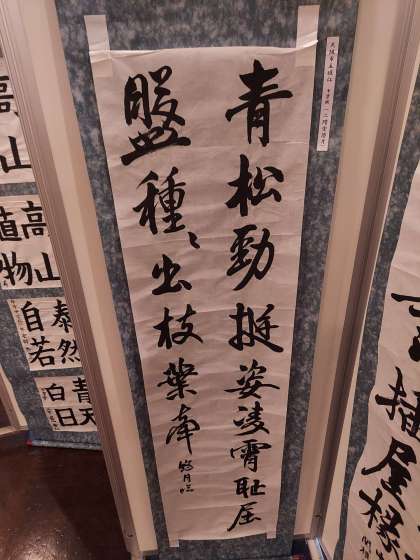 青松勁挺姿凌霄耻屈
盤種〻出枝葉牽
高山
高山
植物
泰然
自若
青天
白日
插屋椽